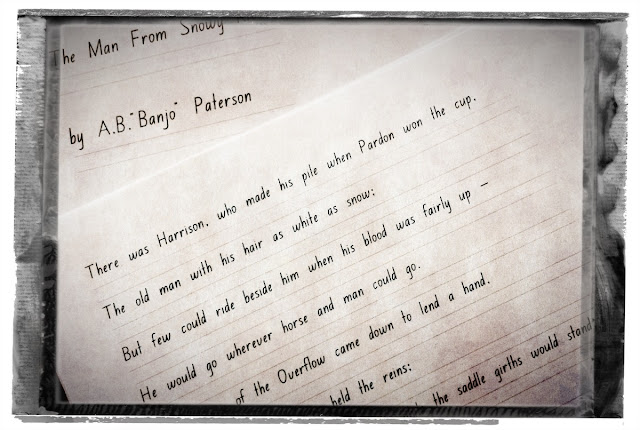 The Man From Snowy
by A.B. "Banjo" Paterson
There was Harrison, who made his pile when Pardon won the cup.
The old man with his hair as white as snow;
But few could ride beside him when his blood was fairly up –
He would go wherever horse and man could go.
of the Overflow came down to lend a hand.
held the reins;
the saddle girths would stand